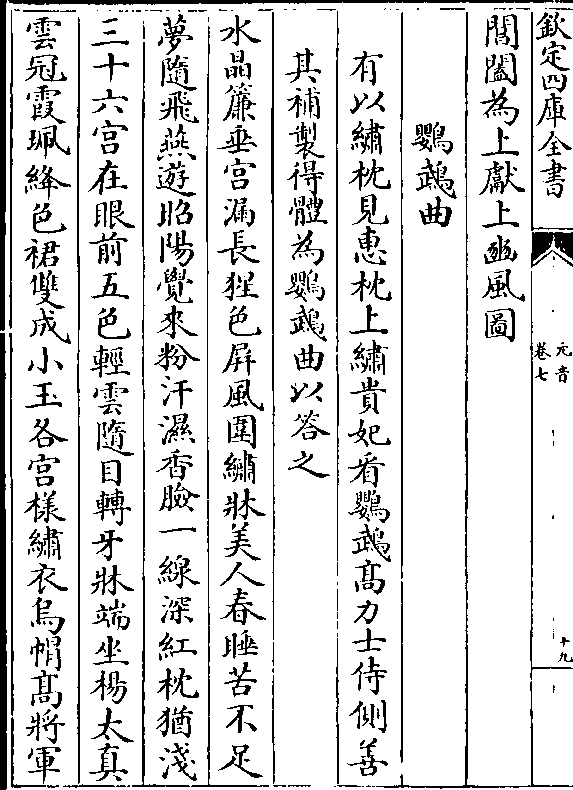 欽定四庫全書
元音
卷七
十九
閶闔為上獻上豳風圖
鸚鵡曲
有以繡枕見惠枕上繡貴妃看鸚鵡髙力士侍側善
其補製得體為鸚鵡曲以答之
水晶簾垂宫漏長猩色屏風圍繡牀美人春睡苦不足
夢隨飛燕遊昭陽覺來粉汗濕香臉一線深紅枕猶淺
三十六宫在眼前五色輕雲隨目轉牙牀端坐楊太真
雲冠霞珮絳色裙雙成小玉各宫樣繡衣烏帽髙將軍